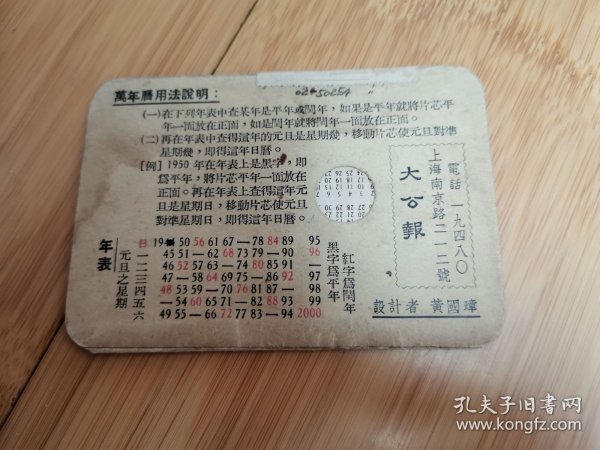 萬年曆用法說明：
(一)在下列年表中查某年是平年或閏年，如果是平年就將片芯平
年一面放在正面，如是閏年就將閏年一面放在正面。
(二)再在年表中查得這年的元旦是星期幾，移動片芯使元旦對準
星期幾，即得這年日曆。
[例] 1950 年在年表上是黑字，即
爲平年，將片芯平年一面放在
正面。再在年表上查得這年元
旦是星期日，移動片芯使元旦
對準星期日，即得這年日曆。
電話 一九四八〇
上海南京路二一二號
大公報
設計者 黃國璋
年表
元旦之星期
日 19 50 56 61 67 — 78 84 89 95
一 45 51 — 62 68 73 79 — 90 96
二 46 52 57 63 — 74 80 85 91 —
三 47 — 58 64 69 75 — 86 92 97
四 48 53 59 — 70 76 81 87 — 98
五 — 54 60 65 71 — 82 88 93 99
六 49 55 — 66 72 77 83 — 94 2000
紅字爲閏年
黑字爲平年
孔夫子旧书网
www.kongfz.com